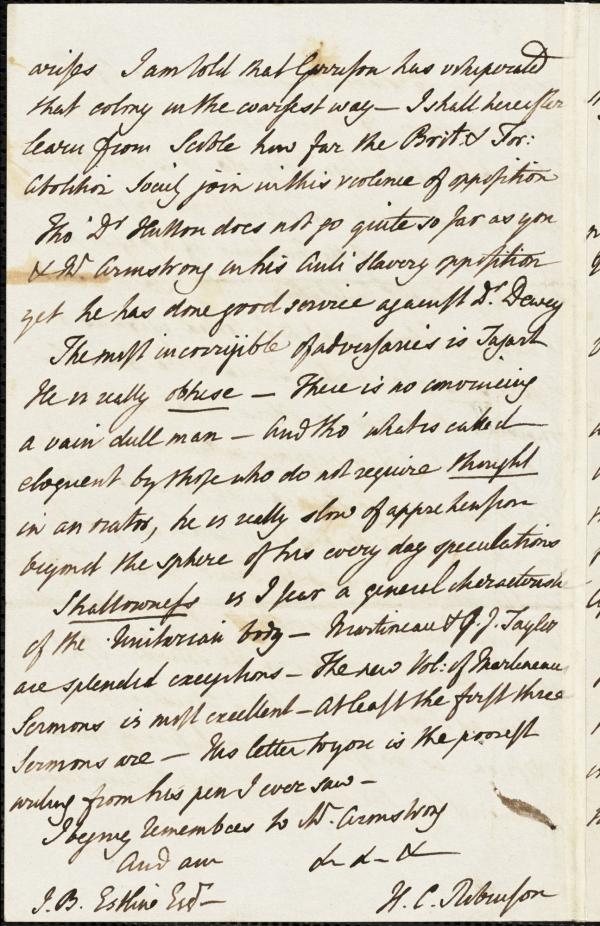 arises I am told that Garrison has vituperated
that colony in the coarsest way — I shall hereafter
learn from Scoble how far the Brit: & For:
Abolition Society join in this violence of opposition
Tho' Dr Hutton does not go quite so far as you
& Mr Armstrong in his Anti Slavery opposition
yet he has done good service against Dr. Dewey
The most incorrigible of adversaries is Tagart
He is really obtuse — There is no convincing
a vain dull man — And tho' what is called
eloquent by those who do not require thought
in an orator, he is really slow of apprehension
beyond the sphere of his every day speculations
Shallowness is I fear a general characteristic
of the Unitarian body — Martineau & J. J. Tayler
are splendid exceptions — The new Vol: of Martineau
Sermons is most excellent — At least the first three
Sermons are — His letter to you is the poorest
writing from his pen I ever saw —
I beg my remembces to Mr. Armstrong
And am &— &— &
J. B. Estlin Esqr —
H. C. Robinson